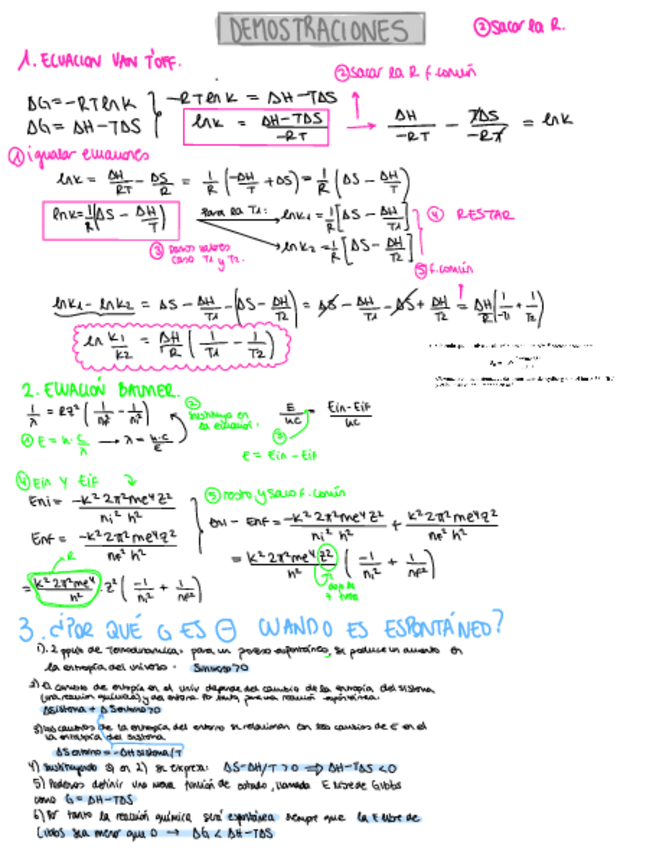 DEMOSTRACIONES
② sacar la R.
1. ECUACION VAN T'OFF.
② sacar la R f común
ΔG = -RTlnK } -RTlnK = ΔH-TΔS
ΔG = ΔH-TΔS   lnK = ΔH-TΔS / -RT → ΔH / -RT - TΔS / -RT = lnK
① igualar ecuaciones
lnK = ΔH/RT - ΔS/R = 1/R (-ΔH/T + ΔS) = 1/R (ΔS - ΔH/T)
lnK = 1/R (ΔS - ΔH/T)   Para la T1: lnK1 = 1/R [ΔS - ΔH/T1] ④ RESTAR
③ Damos valores caso T1 y T2.   lnK2 = 1/R [ΔS - ΔH/T2]
⑤ f. común
lnK1 - lnK2 = ΔS - ΔH/T1 - (ΔS - ΔH/T2) = ΔS - ΔH/T1 - ΔS + ΔH/T2 = ΔH/R (1/-T1 + 1/T2)
ln K1/K2 = ΔH/R (1/T1 - 1/T2)
2. ECUACIÓN BALMER.
1/λ = RZ² (1/nf² - 1/ni²)   ② Sustituyo en la ecuación:   E/hc = Ein-Eif / hc
① E = h·c/λ → λ = h·c/E   ③ E = Ein - Eif
④ Ein Y Eif   ⑤ resto, y saco f. común
Eni = -K²2π²me⁴Z² / ni² h²
Eni - Enf = -K²2π²me⁴Z² / ni² h² + K²2π²me⁴Z² / nf² h²
Enf = -K²2π²me⁴Z² / nf² h²
= K²2π²me⁴Z² / h² (-1/ni² + 1/nf²)
R
= K²2π²me⁴ / h² · Z² (-1/ni² + 1/nf²)
3. ¿POR QUÉ G ES ⊖ CUANDO ES ESPONTÁNEO?
1). 2 ppio de Termodinamica: para un proceso espontáneo, se produce un aumento en
la entropía del universo. Suniverso>0
2) El cambio de entropía en el univ depende del cambio de la entropía del sistema
(una reaccion química) y del entorno. Por tanto, para una reacción espontánea:
ΔSistema + ΔSentorno>0
3) los cambios de la entropía del entorno se relacionan con los cambios de E en el
la entalpía del sistema
ΔSentorno = -ΔHsistema/T
4) Sustituyendo 3) en 2) se expresa: ΔS-ΔH/T > 0 ⟹ ΔH-TΔS < 0
5) Podemos definir una nueva función de estado, llamada E libre de Gibbs
como G = ΔH-TΔS
6) Por tanto la reacción química será espontánea siempre que la E libre de
Gibbs sea menor que 0 → ΔG < ΔH-TΔS